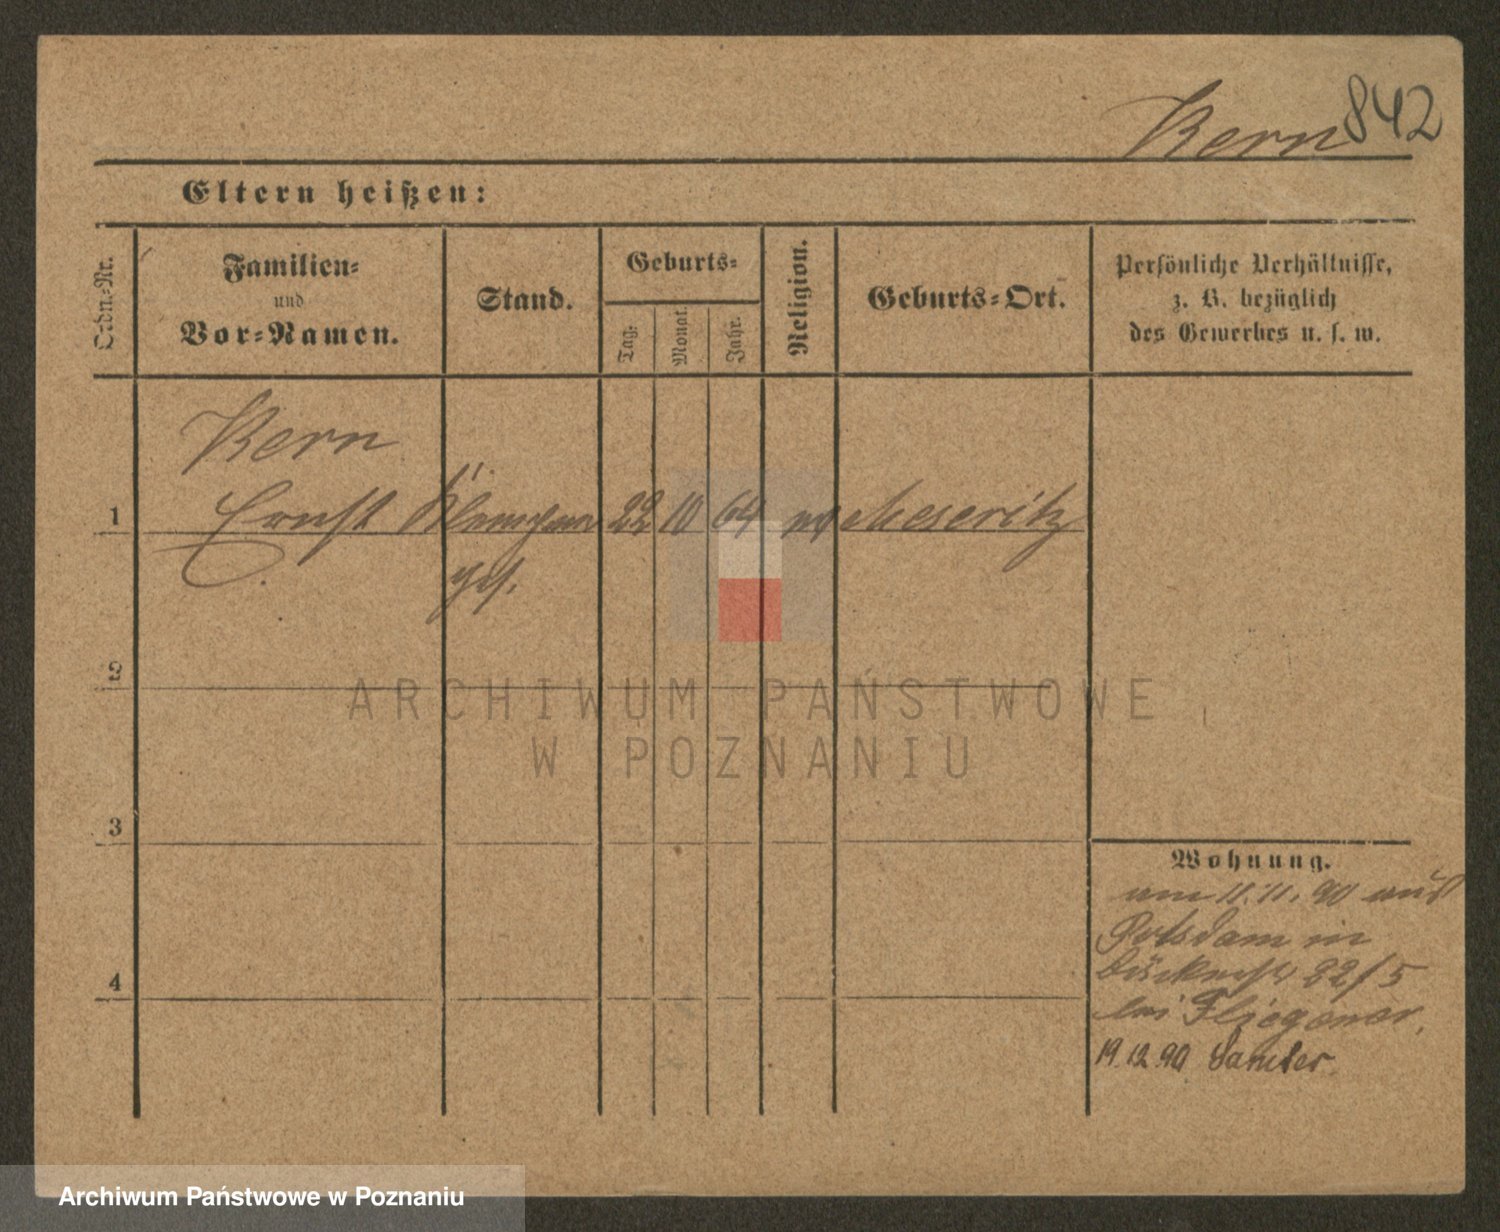 Kern 842
Eltern heißen:
Ordn.-Nr.
Familien-
und
Vor-Namen.
Stand.
Geburts-
Tag.
Monat.
Jahr.
Religion.
Geburts-Ort.
Persönliche Verhältnisse,
z. B. bezüglich
des Gewerbes u. s. w.
Kern
1 Ernst Klempner 22 10 64 Meseritz
ges.
2
3
4
Wohnung.
am 11.11.90 aus
Potsdam in
22/5
bei Fliegener.
19.12.90 Samter.
ARCHIWUM PAŃSTWOWE
W POZNANIU
Archiwum Państwowe w Poznaniu